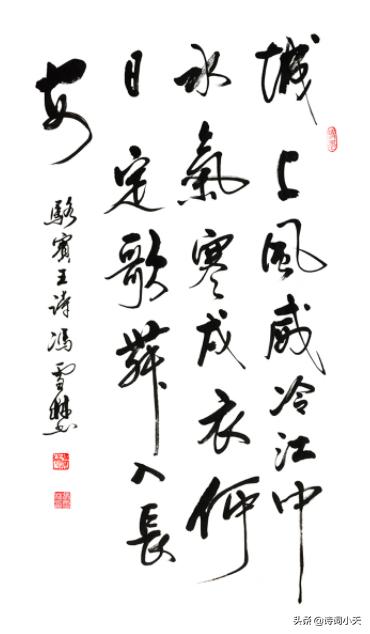 城上風威冷江中
水氣寒戎衣何
日定歌舞入長
安
駱賓王诗冯雪
头条 @诗词小天